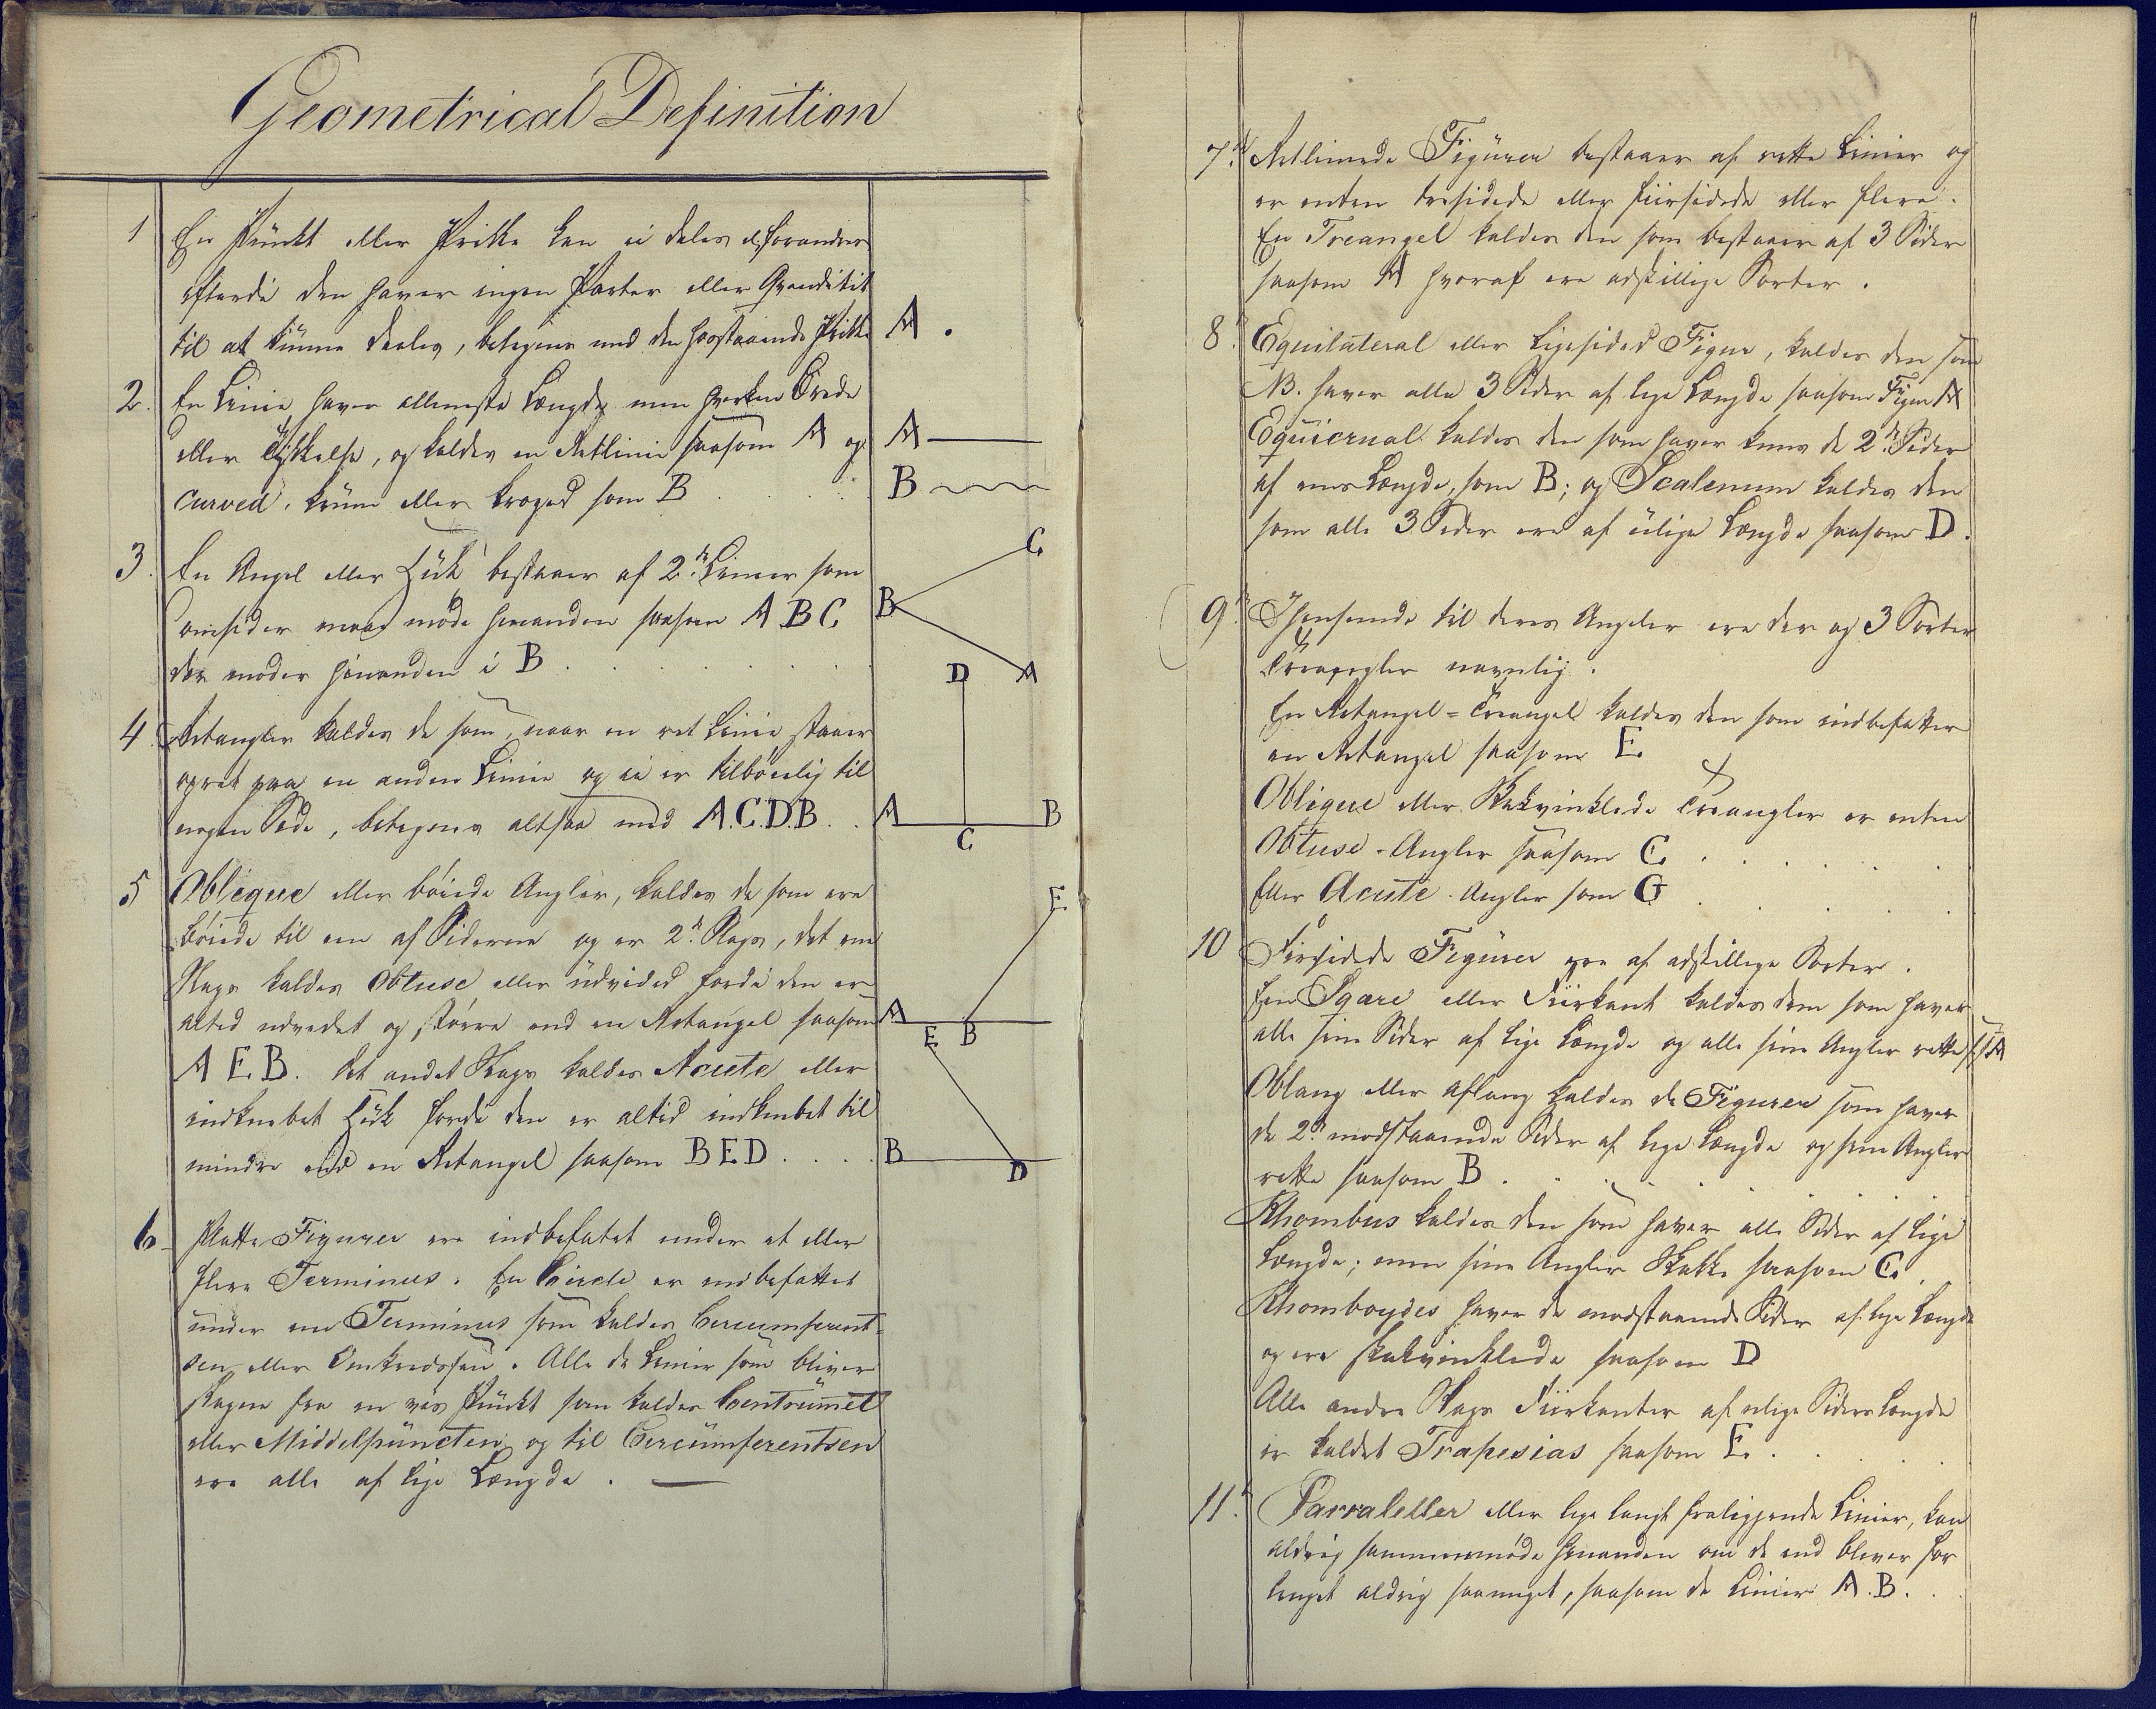 Geometrical Definition
1 En Pünkt eller Prikke kan ei deles el. forandres
efterdi den haver ingen Parter eller Qvanditet
til at künne deeles, betegnes med den hosstaaende Prikke A .
2. En Linie haver allene sta Længde men hverken Brede
eller Tykkelse, og kaldes en Retlinie saasom A og A
curved, krüm eller kroged som B B
3. En Angel eller Hük bestaaer af 2de Linier som
omsider maae møde hinanden saasom A B C
der møder hinanden i B
C
B
A
4. Retangler kaldes de som, naar en ret Linie staaer
opret paa en anden Linie og ei er tilbøielig til
nogen Side, betegnes altsaa med A.C.D.B.
D
A B
C
5 Obligue eller böiede Angler, kaldes de som ere
böiede til een af Siderne og er 2de Slags, det ene
Slags kaldes Obtuse eller üdvided fordi den er
altid udvidet og större end en Retangel saasom
A E B. Det andet Slags kaldes Acute eller
indknebet Hük fordi den er altid indknebet til
mindre end en Retangel saasom B E D
E
A
B
E
B
D
6 Platte Figurer ere indbefatet under et eller
flere Terminus. En Circle er indbefattet
under een Terminus som kaldes Circumferent-
sen eller Omkredssen. Alle de Linier som bliver
dragen fra en vis Pünkt som kaldes Centrümet
eller Middelpüncten og til Circümferentsen
ere alle af lige Længde.
7de Retlinede Figürer bestaaer af rette Linier og
er enten tresidede eller fiirsidede eller flere.
En Treangel kaldes den som bestaaer af 3 Sider
saasom A hvoraf ere adskillige Sorter.
8. Equilateral eller Ligesided Figur, kaldes den som
NB. haver alle 3 Sider af lige Længde saasom Figur A
Equicrual kaldes den som haver kuns de 2de Sider
af eens Længde, som B; og Scalenum kaldes den
som alle 3 Sider ere af ulige Længde saasom D.
9. Ihenseende til deres Angeler ere der og 3 Sorter
Treangler navnlig.
En Retangel = Treangel kaldes den som indbefatter
en Retangel saasom E
Obligue eller Skakvinklede Treangler er enten
Obtuse-Angler saasom C
Eller Acute-Angler som G
10 Fiirsidede Figürer ere af adskillige Sorter.
Een Sqare eller Fiirkant kaldes dem som haver
alle sine Sider af lige Længde og alle sine Angler rette s.s. A
Oblang eller aflang kaldes de Figurer som haver
de 2de modstaaende Sider af lige Længde og sine Angler
rette saasom B
Rhombus kaldes den som haver alle Sider af lige
Længde; men sine Angler Skakke saasom C
Rhomboydes haver de modstaaende Sider af lige Længde
og ere skakvinklede saasom D
Alle andre Slags Fiirkanter af ulige Siders Længde
er kaldet Trapesias saasom E
11. Parraleller eller lige langt fraliggende Linier, kan
aldrig sammenmøde hinanden om de end bliver for
lenget aldrig saameget, saasom de Linier A.B.